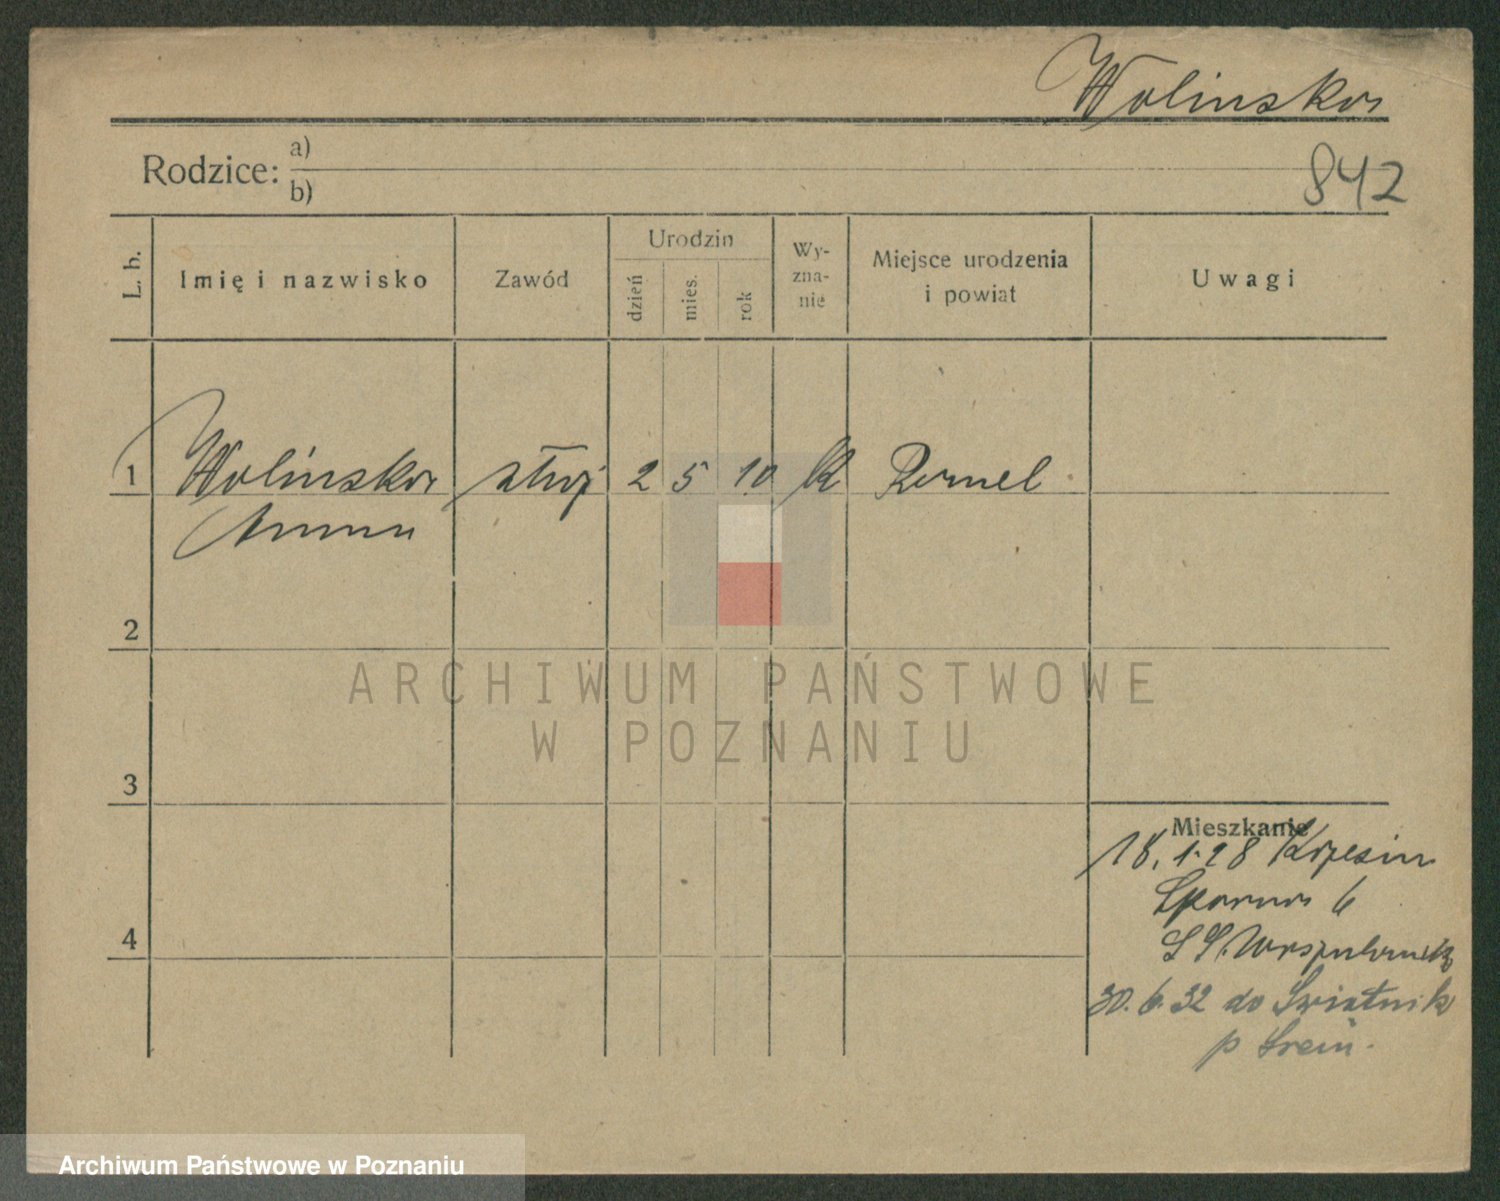 Wolinska
842
Rodzice: a)
b)
L. b.
Imię i nazwisko
Zawód
Urodzin
dzień
mies.
rok
Wy-
zna-
nie
Miejsce urodzenia
i powiat
Uwagi
1 Wolinska służ 2 5 10 K
Anna
2
3
4
Mieszkanie
18.1.28 Krzesin
6
30.6.32 do Swiątnik
p Srem.
ARCHIWUM PAŃSTWOWE
W POZNANIU
Archiwum Państwowe w Poznaniu